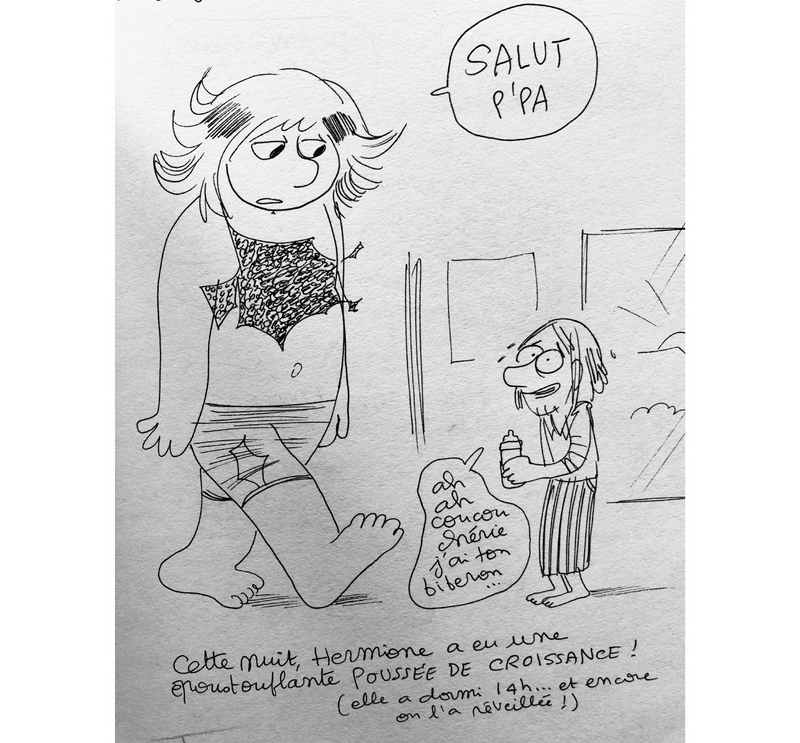 SALUT
P'PA
ah
ah
coucou
chérie
j'ai ton
biberon...
Cette nuit, Hermione a eu une
époustouflante POUSSÉE DE CROISSANCE !
(elle a dormi 14h... et encore
on l'a réveillée !)